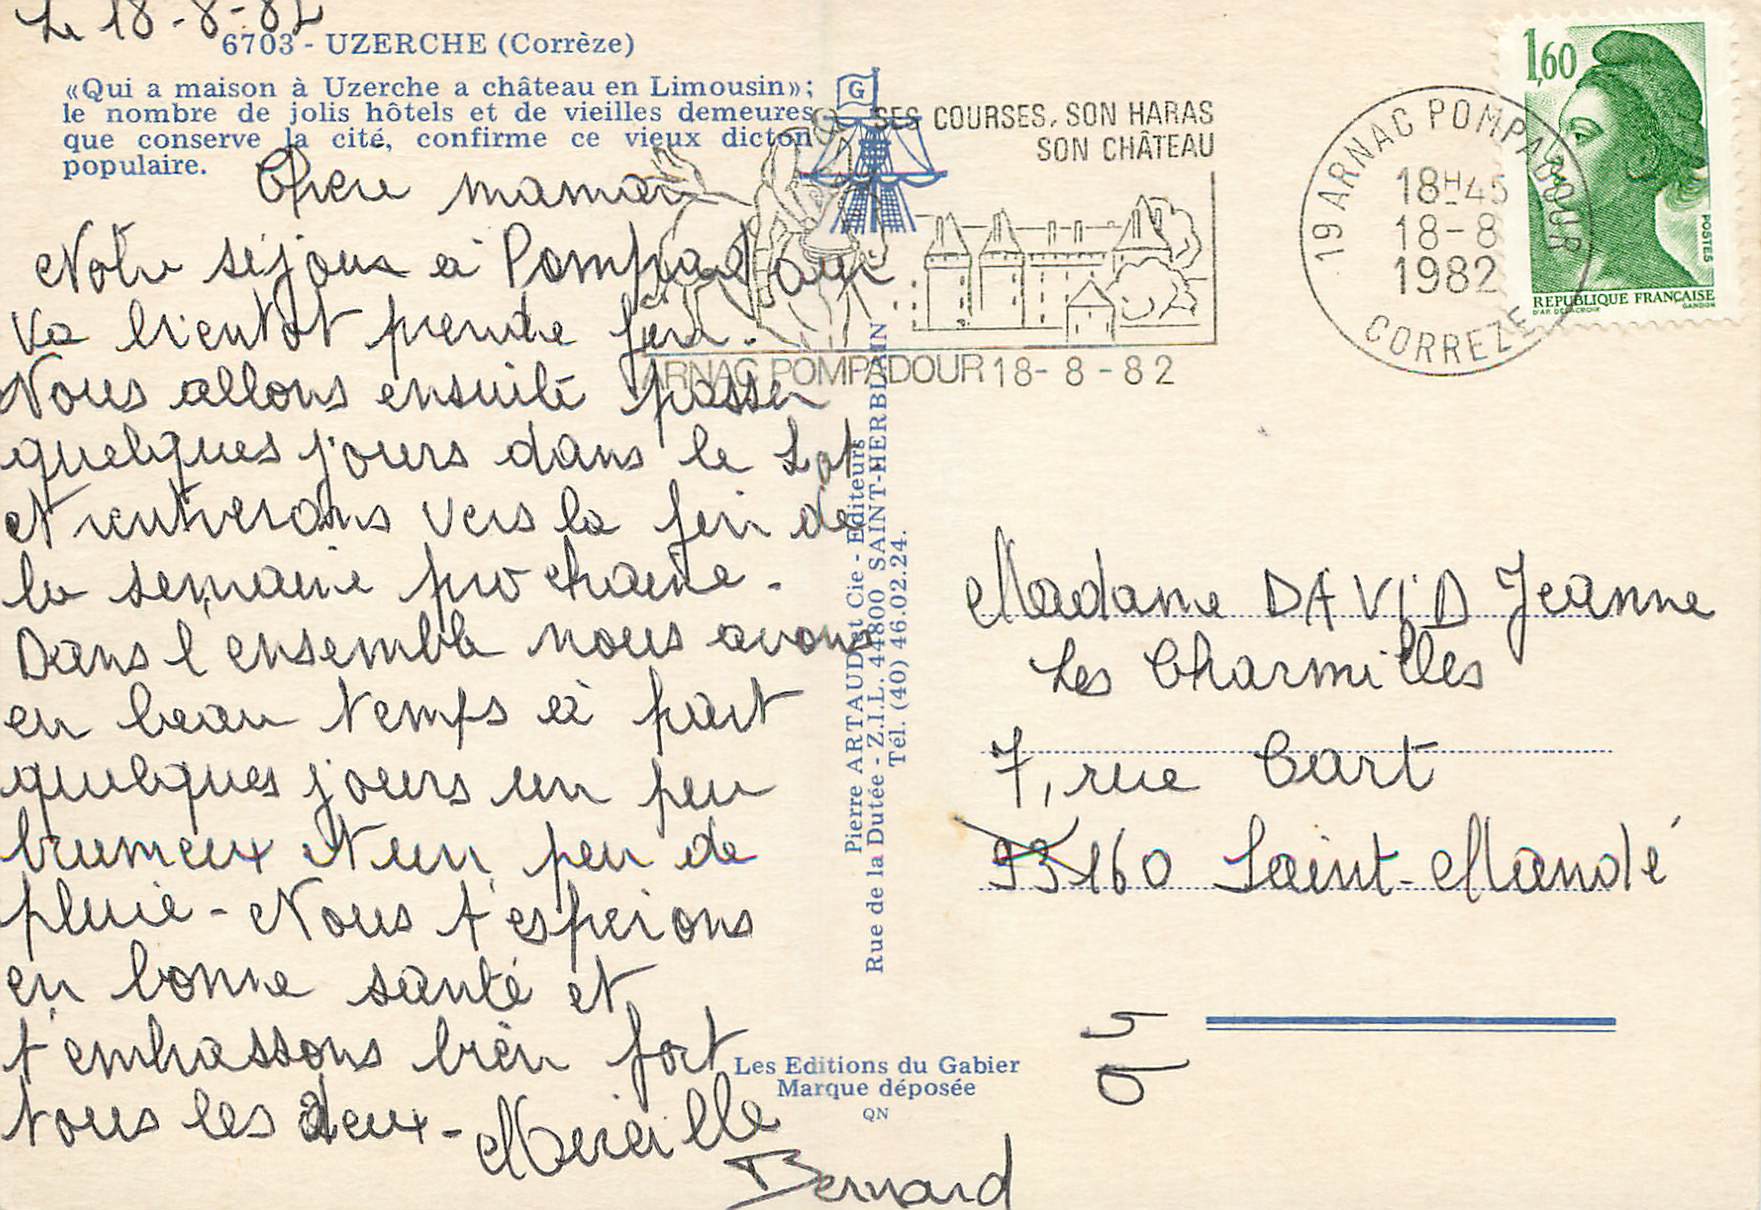 Le 18-8-82
6703 - UZERCHE (Corrèze)
«Qui a maison à Uzerche a château en Limousin»;
le nombre de jolis hôtels et de vieilles demeures
que conserve la cité, confirme ce vieux dicton
populaire.
Chere maman
Notre séjour à Pompadour
va bientot prendre fin.
Nous allons ensuite passer
quelques jours dans le Lot
et rentrerons vers la fin de
la semaine prochaine.
Dans l'ensemble nous avons
eu beau temps à part
quelques jours un peu
brumeux et un peu de
pluie - Nous t'esperons
en bonne santé et
t'embrassons bien fort
tous les deux - Mireille
Bernard
G
SES COURSES, SON HARAS
SON CHÂTEAU
ARNAC POMPADOUR 18-8-82
19 ARNAC POMPADOUR
18H45
18-8
1982
CORREZE
1,60
POSTES
REPUBLIQUE FRANÇAISE
D'AP. DELACROIX
GANDON
Pierre ARTAUD et Cie - Editeurs
Rue de la Dutée - Z.I.L. 44800 SAINT-HERBLAIN
Tél. (40) 46.02.24.
Madame DAVID Jeanne
Les Charmilles
7, rue Cart
93160 Saint-Mandé
Les Editions du Gabier
Marque déposée
QN